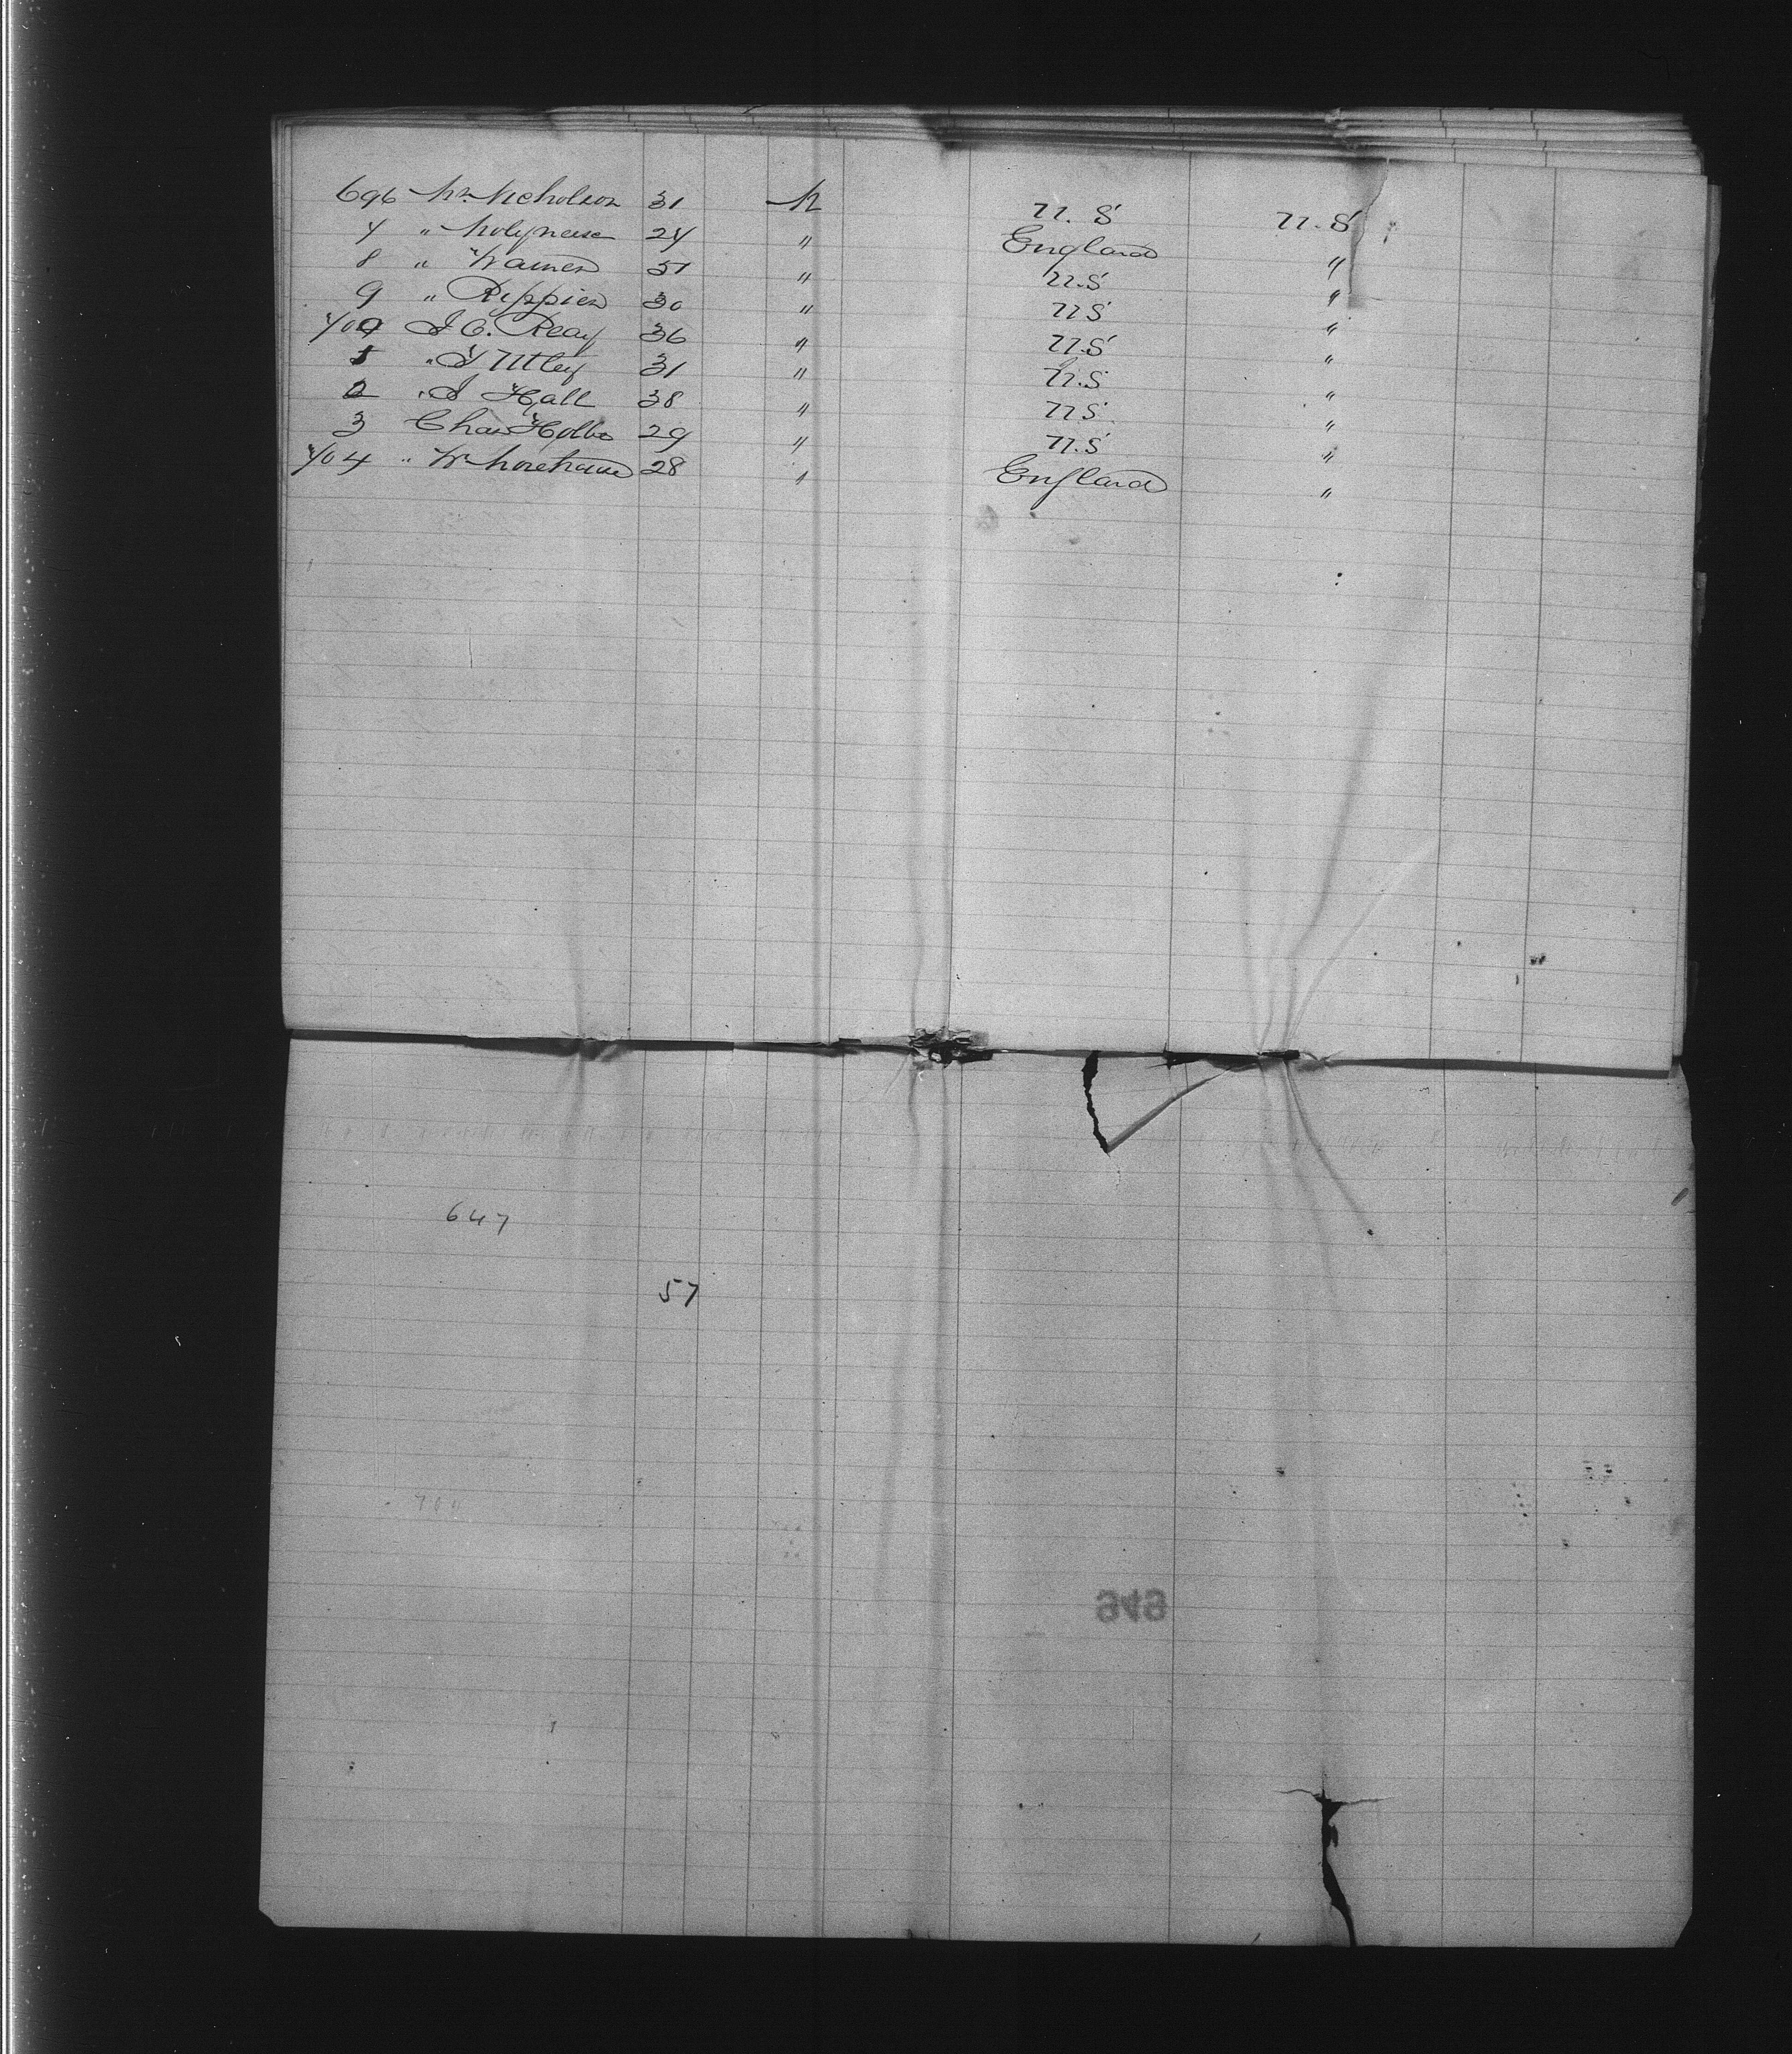 696 Mr. Nicholson 31 M U.S U.S
7 " Molyneux 24 " England "
8 " Warner 31 " U.S "
9 " Rippier 30 " U S "
700 J C. Reay 36 " U.S "
1 " J Utley 31 " U.S "
2 " J Hall 38 " U S "
3 Chas Holbs 29 " U.S "
704 " W 28 " England "
647
57
949